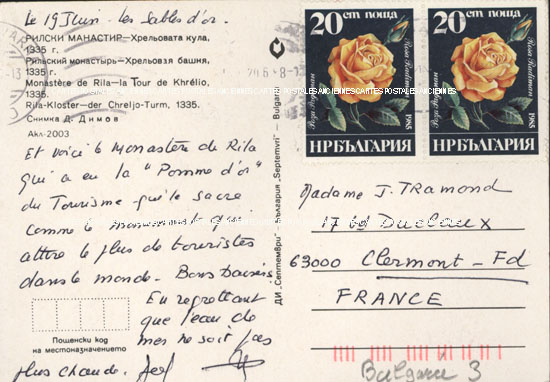 Le 19 Juin - Les Sables d'or.
РИЛСКИ МАНАСТИР—Хрельовата кула,
1335 г.
Рильский монастырь—Хрельовая башня,
1335.
Monastère de Rila—la Tour de Khrélio,
1335.
Rila-Kloster—der Chreljo-Turm, 1335.
Снимка Д. Димов
Акл-2003
Et voici le monastère de Rila
qui a eu la "Pomme d'or"
du Tourisme qui le sacre
comme le monument qui
attire le plus de touristes
dans le monde - Bons baisers
En regrettant
que l'eau de
mer ne soit pas
plus chaude.
Пощенски код
на местоназначението
ДИ „Септември" — България „Septemvri" — Bulgaria
20 ст поща
Роза Радиман
Rosa Radiman
1985
НР БЪЛГАРИЯ
20 ст поща
Роза Радиман
Rosa Radiman
1985
НР БЪЛГАРИЯ
CARTES POSTALES ANCIENNES
Madame J. TRamond
17 bd Duclaux
63000 Clermont - Fd
FRANCE
Bulgarie 3